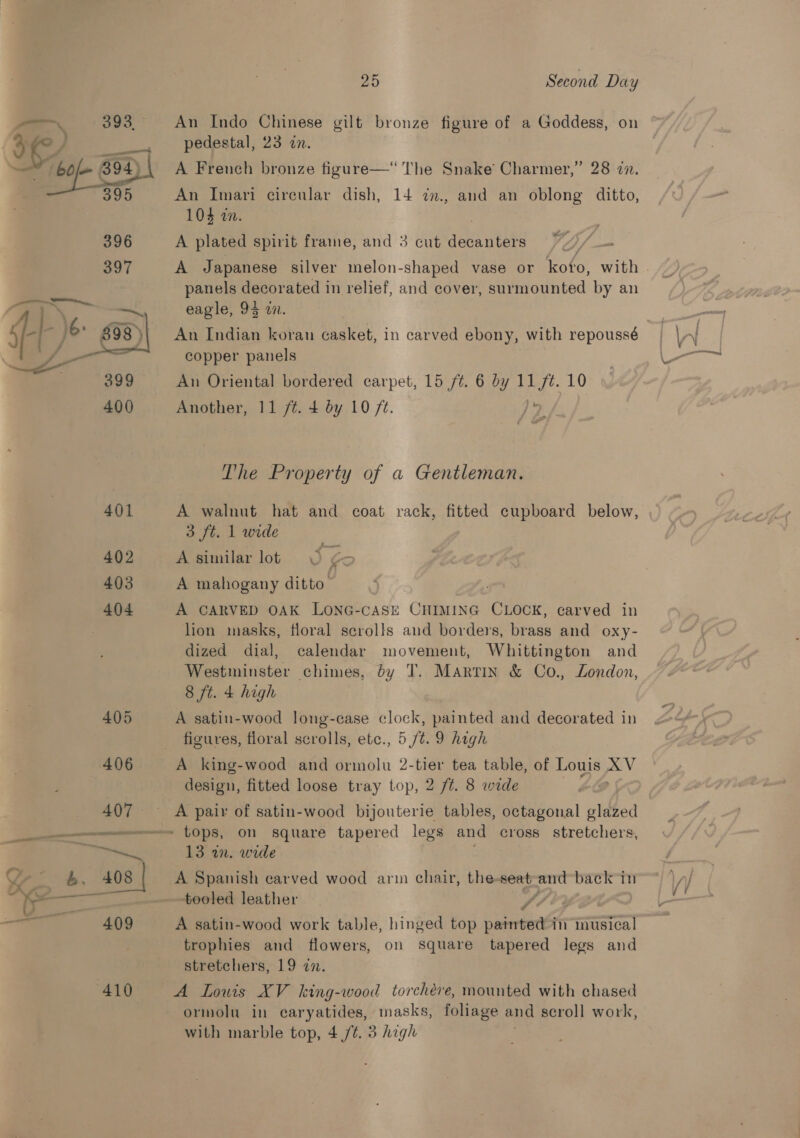 25 Second Day
393 An Indo Chinese gilt bronze figure of a Goddess, on
pedestal, 23 in.
394 A French bronze figure—“The Snake Charmer,” 28 in.
395 An Imari circular dish, 14 in., and an oblong ditto,
10½ in.
396 A plated spirit frame, and 3 cut decanters
397 A Japanese silver melon-shaped vase or koto, with
panels decorated in relief, and cover, surmounted by an
eagle, 9½ in.
398 An Indian koran casket, in carved ebony, with repoussé
copper panels
399 An Oriental bordered carpet, 15 ft. 6 by 11 ft. 10
400 Another, 11 ft. 4 by 10 ft.
The Property of a Gentleman.
401 A walnut hat and coat rack, fitted cupboard below,
3 ft. 1 wide
402 A similar lot
403 A mahogany ditto
404 A CARVED OAK LONG-CASE CHIMING CLOCK, carved in
lion masks, floral scrolls and borders, brass and oxy-
dized dial, calendar movement, Whittington and
Westminster chimes, by T. MARTIN & Co., London,
8 ft. 4 high
405 A satin-wood long-case clock, painted and decorated in
figures, floral scrolls, etc., 5 ft. 9 high
406 A king-wood and ormolu 2-tier tea table, of Louis XV
design, fitted loose tray top, 2 ft. 8 wide
407 A pair of satin-wood bijouterie tables, octagonal glazed
tops, on square tapered legs and cross stretchers,
13 in. wide
408 A Spanish carved wood arm chair, the seat and back in
tooled leather
409 A satin-wood work table, hinged top painted in musical
trophies and flowers, on square tapered legs and
stretchers, 19 in.
410 A Louis XV king-wood torchère, mounted with chased
ormolu in caryatides, masks, foliage and scroll work,
with marble top, 4 ft. 3 high